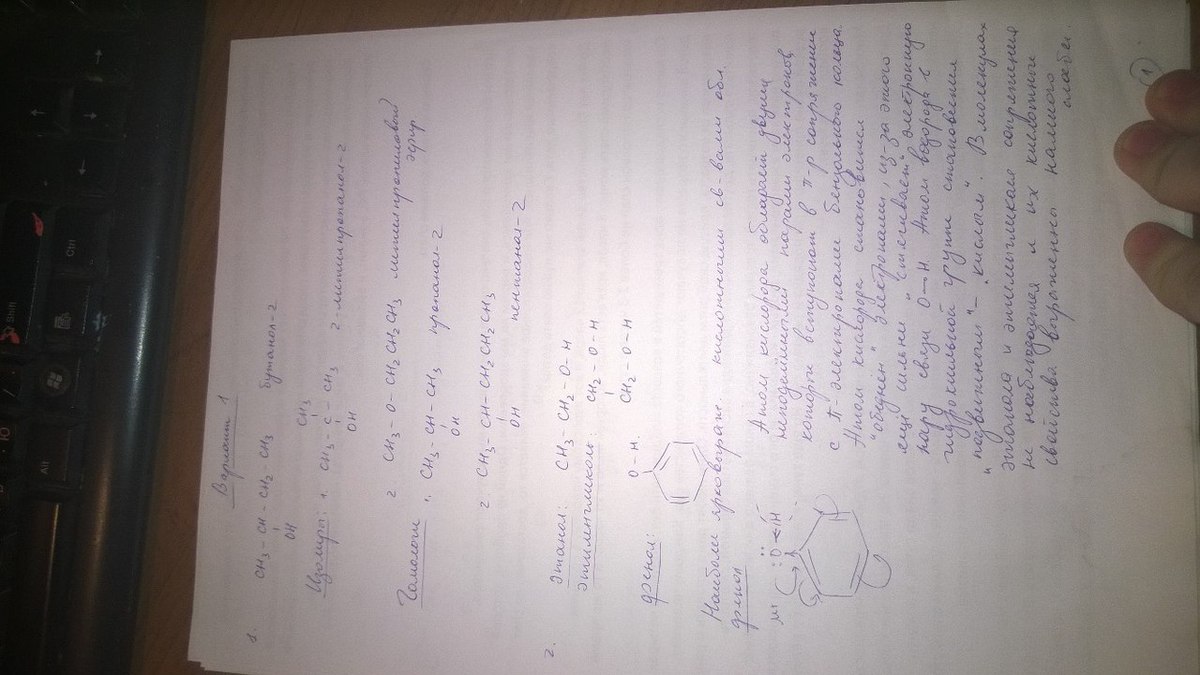 Вариант 1
1. CH₃ – CH – CH₂ – CH₃ бутанол-2
OH
Изомеры: 1. CH₃ – C – CH₃ 2-метилпропанол-2
CH₃
OH
2 CH₃ – O – CH₂CH₂CH₃ метилпропиловый
эфир
Гомологи 1. CH₃ – CH – CH₃ пропанол-2
OH
2 CH₃ – CH – CH₂ CH₂ CH₃
OH пентанол-2
2. Этанол: CH₃ – CH₂ – O – H
Этиленгликоль: CH₂ – O – H
CH₂ – O – H
фенол: O – H.
Наиболее ярко выраж. кислотными св-вами обл.
фенол
Атом кислорода обладает двумя
неподелёнными парами электронов,
которые вступают в π-р сопряжение
с π-электронами бензольного кольца.
Атом кислорода становится
"обеднен" электронами, из-за этого
ещё сильнее "стягивает" электронную
пару связи O – H. Атом водорода в
гидроксильной групп становении
"подвижным" – "кислым". В молекулах
этанола и этиленгликоля сопряжения
не наблюдается и их кислотные
свойства выраженны намного
слабей.
:O ← H
1
Alt
Ctrl
Shift
Ю